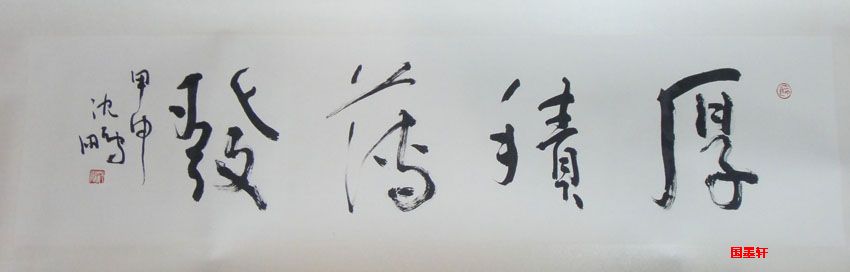 厚積薄發
甲申
沈鵬
国墨轩